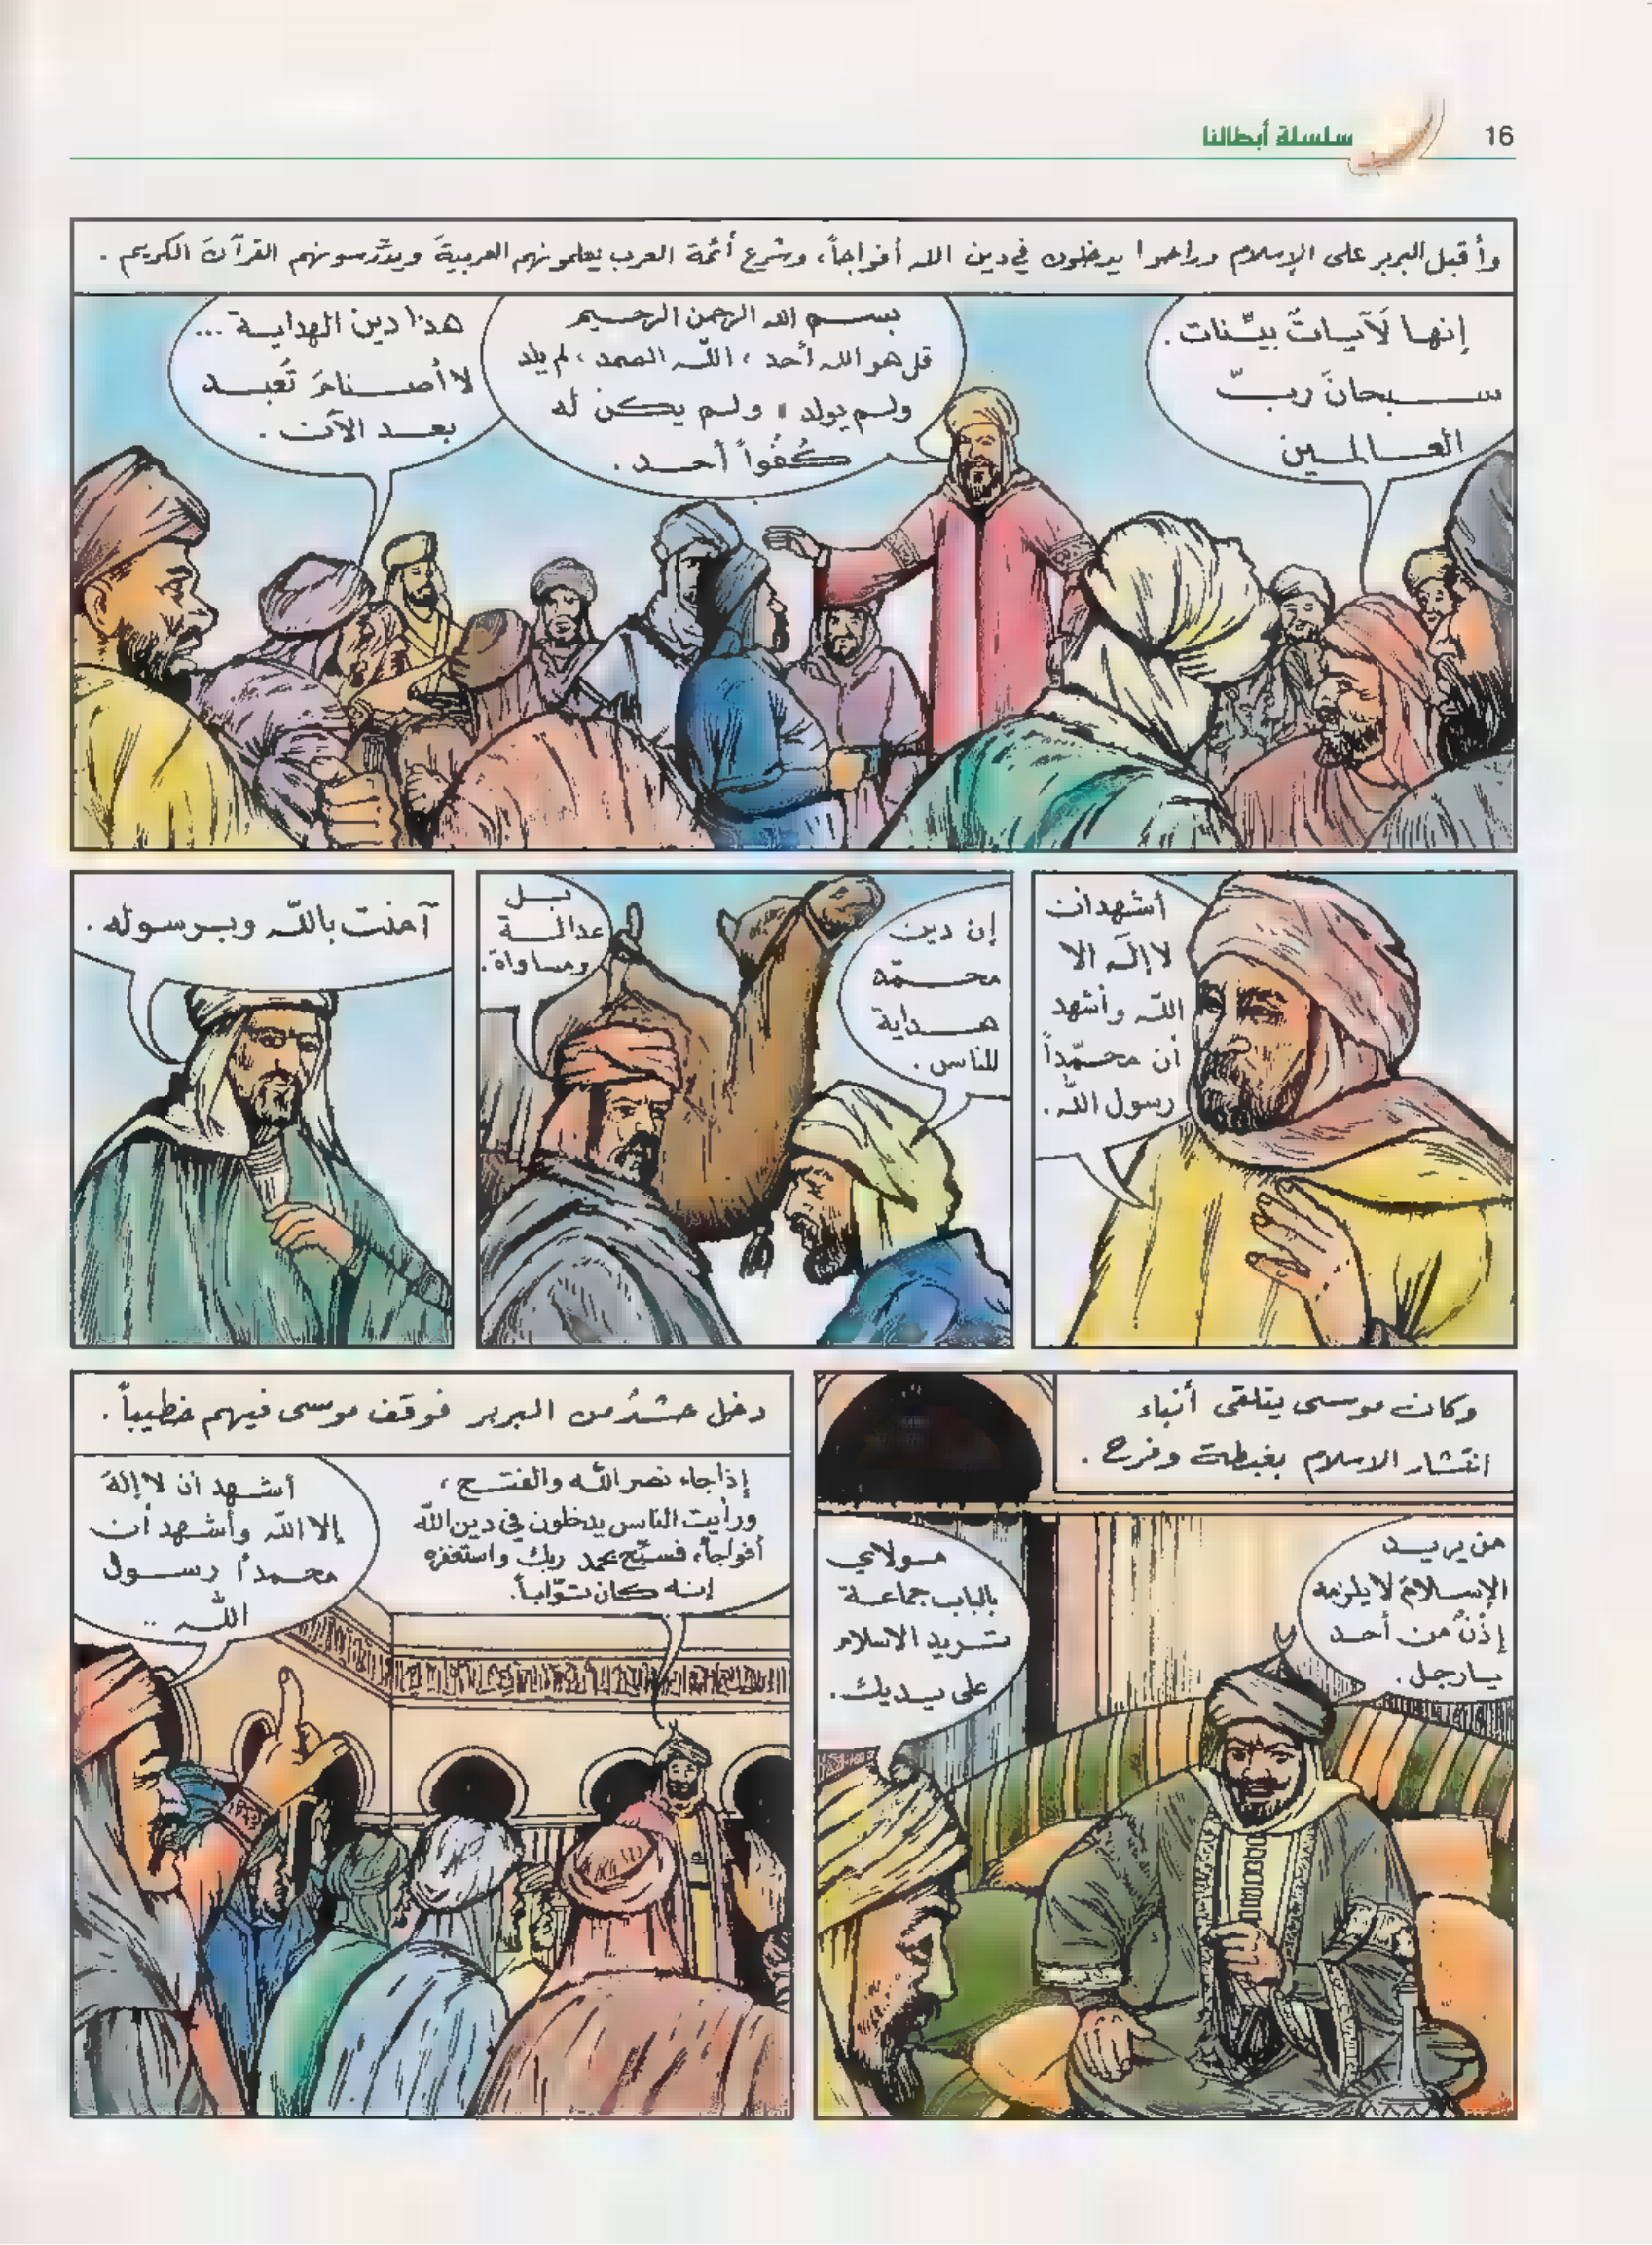 16
سلسلة أبطالنا
وأقبل البربر على الإسلام وراحوا يدخلون في دين الله أفواجاً، وشرع أئمة العرب يعلمونهم العربيةَ ويدرّسونهم القرآنَ الكريم .
إنها لَآياتٌ بيّنات .
سبحانَ ربّ
العالمين
بسم الله الرحمن الرحيم
قل هو الله أحد ، اللّه الصمد ، لم يلد
ولم يولد ، ولم يكن له
كُفُواً أحد .
هذا دين الهداية ...
لا أصنامَ تُعبد
بعد الآن .
أشهد ان
لا إلَه الا
اللّه وأشهد
أن محمّداً
رسول اللّه .
إن دين
محمّد
هداية
للناس .
بل
عدالة
ومساواة .
آمنت باللّه وبرسوله .
وكان موسى يتلقى أنباء
انتشار الاسلام بغبطة وفرح .
مولاي
بالباب جماعة
تريد الاسلام
على يديك .
من يريد
الإسلامَ لا يلزمه
إذنٌ من أحد
يا رجل .
دخل حشدٌ من البربر فوقف موسى فيهم خطيباً .
إذا جاء نصر اللّه والفتح ،
ورأيت الناس يدخلون في دين اللّه
أفواجاً، فسبّح بحمد ربك واستغفره
إنه كان توّاباً .
أشهد ان لا إلهَ
إلا اللّه وأشهد أن
محمداً رسول
اللّه ..